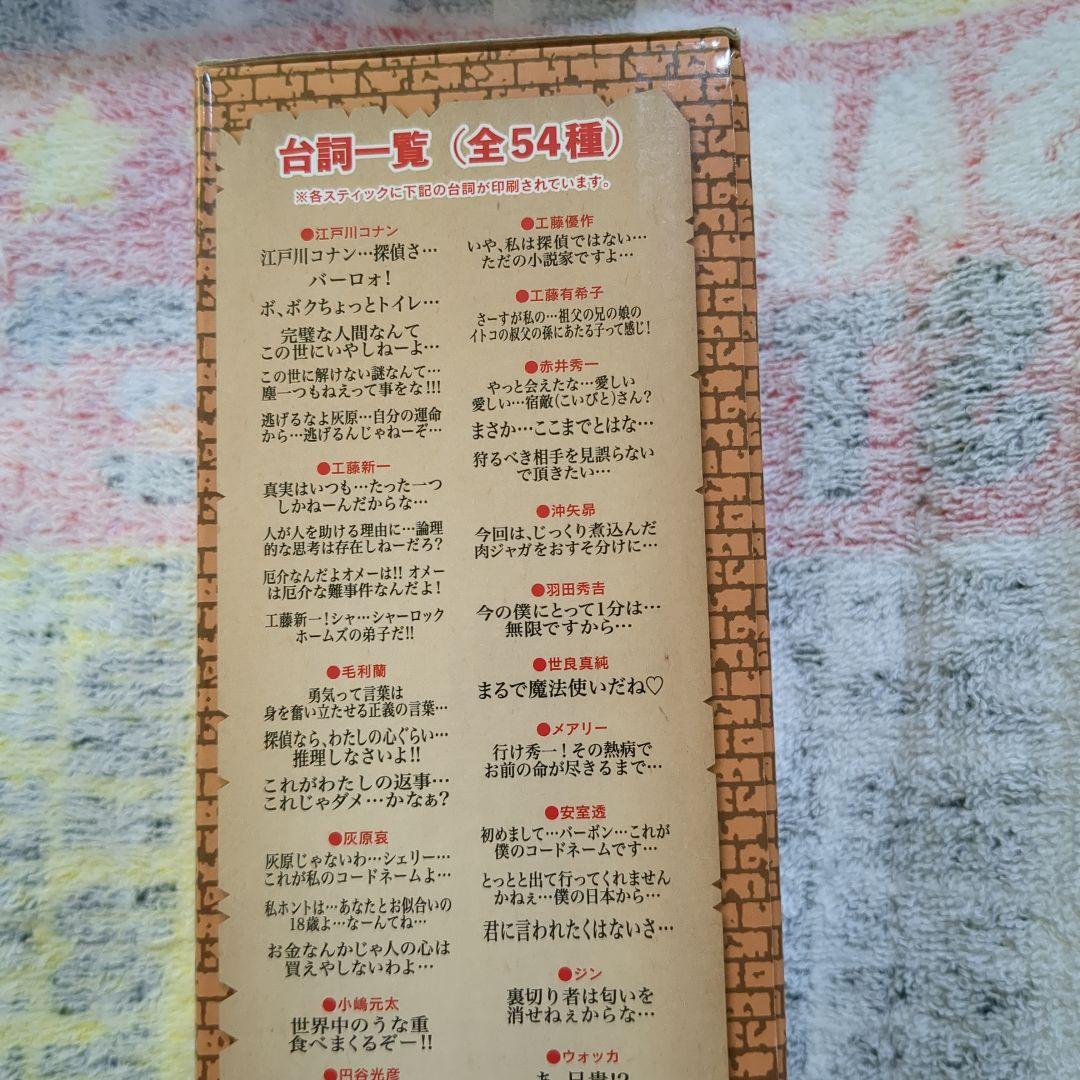 台詞一覧（全54種）
※各スティックに下記の台詞が印刷されています。
●江戸川コナン
江戸川コナン…探偵さ…
バーロォ!
ボ、ボクちょっとトイレ…
完璧な人間なんて
この世にいやしねーよ…
この世に解けない謎なんて…
塵一つもねえって事をな!!!
逃げるなよ灰原…自分の運命
から…逃げるんじゃねーぞ…
●工藤新一
真実はいつも…たった一つ
しかねーんだからな…
人が人を助ける理由に…論理
的な思考は存在しねーだろ?
厄介なんだよオメーは!! オメー
は厄介な難事件なんだよ!
工藤新一!シャ…シャーロック
ホームズの弟子だ!!
●毛利蘭
勇気って言葉は
身を奮い立たせる正義の言葉…
探偵なら、わたしの心ぐらい…
推理しなさいよ!!
これがわたしの返事…
これじゃダメ…かなぁ?
●灰原哀
灰原じゃないわ…シェリー…
これが私のコードネームよ…
私ホントは…あなたとお似合いの
18歳よ…なーんてね…
お金なんかじゃ人の心は
買えやしないわよ…
●小嶋元太
世界中のうな重
食べまくるぞー!!
●円谷光彦
●工藤優作
いや、私は探偵ではない…
ただの小説家ですよ…
●工藤有希子
さーすが私の…祖父の兄の娘の
イトコの叔父の孫にあたる子って感じ!
●赤井秀一
やっと会えたな…愛しい
愛しい…宿敵(こいびと)さん?
まさか…ここまでとはな…
狩るべき相手を見誤らない
で頂きたい…
●沖矢昴
今回は、じっくり煮込んだ
肉ジャガをおすそ分けに…
●羽田秀吉
今の僕にとって1分は…
無限ですから…
●世良真純
まるで魔法使いだね♡
●メアリー
行け秀一!その熱病で
お前の命が尽きるまで…
●安室透
初めまして…バーボン…これが
僕のコードネームです…
とっとと出て行ってくれません
かねぇ…僕の日本から…
君に言われたくはないさ…
●ジン
裏切り者は匂いを
消せねぇからな…
●ウォッカ